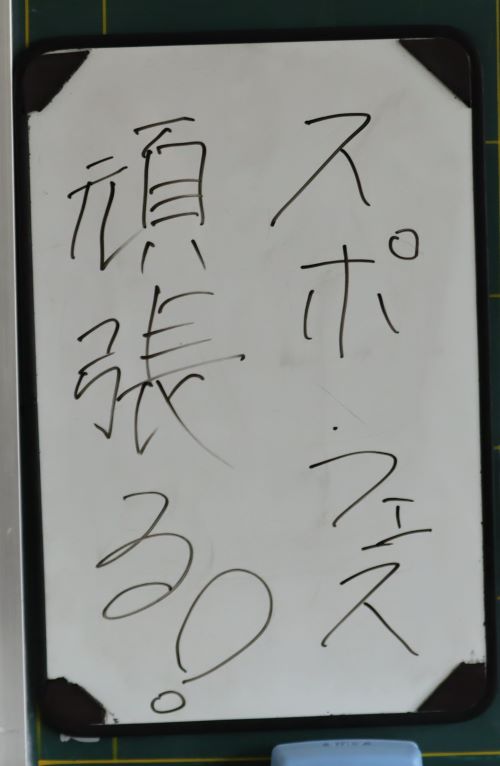 スポ・フェス
頑張る!